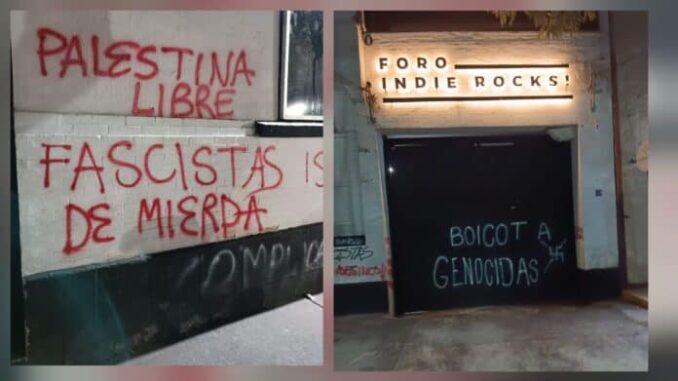 PALESTINA
LIBRE
FASCISTAS IS
DE MIERDA
COMPLIC
FORO
INDIE ROCKS!
BOICOT A
GENOCIDAS